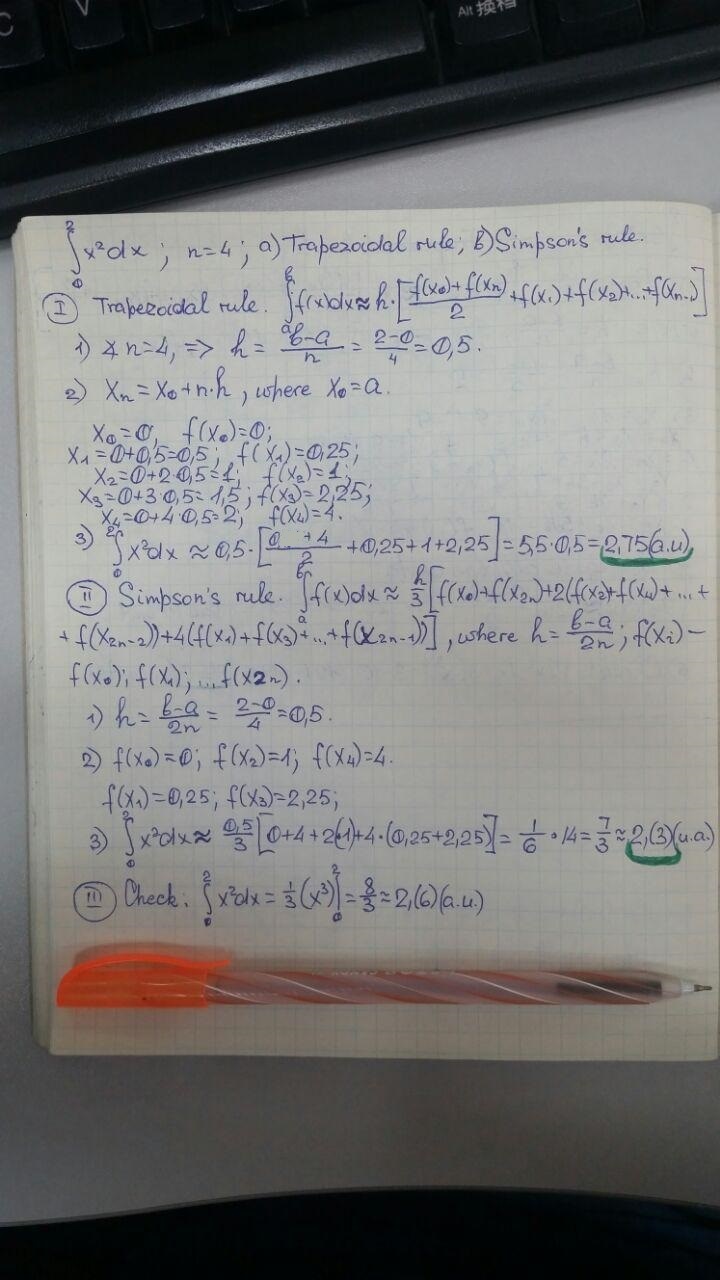 C V Alt 换档
∫₀² x²dx ; n=4 ; a) Trapezoidal rule; b) Simpson's rule.
I Trapezoidal rule. ∫ₐᵇ f(x)dx ≈ h·[(f(x₀)+f(xₙ))/2 + f(x₁)+f(x₂)+...+f(xₙ₋₁)]
1) ∡ n=4, => h = (b-a)/n = (2-0)/4 = 0,5.
2) Xₙ = X₀+n·h, where X₀=a.
X₀=0, f(x₀)=0;
X₁=0+0,5=0,5; f(x₁)=0,25;
X₂=0+2·0,5=1; f(x₂)=1;
X₃=0+3·0,5=1,5; f(x₃)=2,25;
X₄=0+4·0,5=2; f(x₄)=4.
3) ∫₀² x²dx ≈ 0,5·[(0+4)/2 +0,25+1+2,25] = 5,5·0,5 = 2,75(a.u)
II Simpson's rule. ∫ₐᵇ f(x)dx ≈ h/3[f(x₀)+f(x₂ₙ)+2(f(x₂)+f(x₄)+...+
+f(x₂ₙ₋₂))+4(f(x₁)+f(x₃)+...+f(x₂ₙ₋₁))], where h=(b-a)/2n; f(xᵢ) –
f(x₀); f(x₁); ... f(x₂ₙ).
1) h = (b-a)/2n = (2-0)/4 = 0,5.
2) f(x₀)=0; f(x₂)=1; f(x₄)=4.
f(x₁)=0,25; f(x₃)=2,25;
3) ∫₀² x²dx ≈ 0,5/3[0+4+2(·1)+4·(0,25+2,25)] = 1/6 · 14 = 7/3 ≈ 2,(3)(u.a.)
III Check: ∫₀² x²dx = 1/3(x³)|₀² = 8/3 ≈ 2,(6)(a.u.)